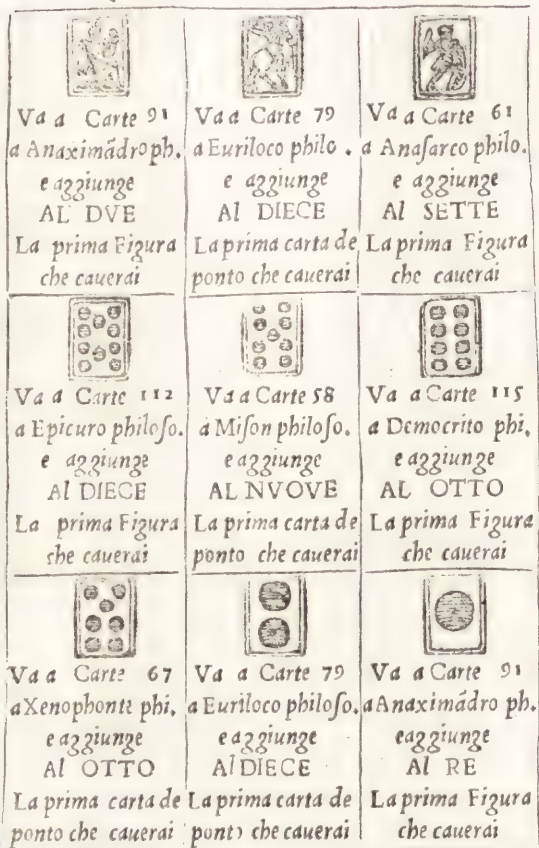 Va a Carte 91
a Anaximãdro ph.
e aggiunge
AL DVE
La prima Figura
che cauerai
Va a Carte 79
a Euriloco philo.
e aggiunge
Al DIECE
La prima carta de
ponto che cauerai
Va a Carte 61
a Anaſarco philo.
e aggiunge
Al SETTE
La prima Figura
che cauerai
Va a Carte 112
a Epicuro philoſo.
e aggiunge
Al DIECE
La prima Figura
che cauerai
Va a Carte 58
a Miſon philoſo.
e aggiunge
AL NVOVE
La prima carta de
ponto che cauerai
Va a Carte 115
a Democrito phi,
e aggiunge
AL OTTO
La prima Figura
che cauerai
Va a Carte 67
a Xenophonte phi,
e aggiunge
Al OTTO
La prima carta de
ponto che cauerai
Va a Carte 79
a Euriloco philoſo.
e aggiunge
Al DIECE
La prima carta de
ponto che cauerai
Va a Carte 91
a Anaximãdro ph.
e aggiunge
Al RE
La prima Figura
che cauerai